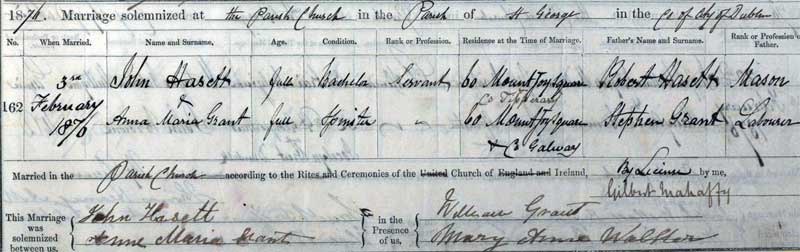 1876 Marriage solemnized at the Parish Church in the Parish of St George in the Co of City of Dublin
No. When Married. Name and Surname. Age. Condition. Rank or Profession. Residence at the Time of Marriage. Father's Name and Surname. Rank or Profession of Father.
162 3rd February 1876 John Hasett full Bachelor Servant 60 Mountjoy Square Co Tipperary Robert Hasett Mason
Anna Maria Grant full Spinster " 60 Mountjoy Square & Co Galway Stephen Grant Labourer
Married in the Parish Church according to the Rites and Ceremonies of the United Church of England and Ireland, By License by me,
Gilbert Mahaffy
This Marriage was solemnized between us, John Hasett Anne Maria Grant in the Presence of us, William Grant Mary Anne